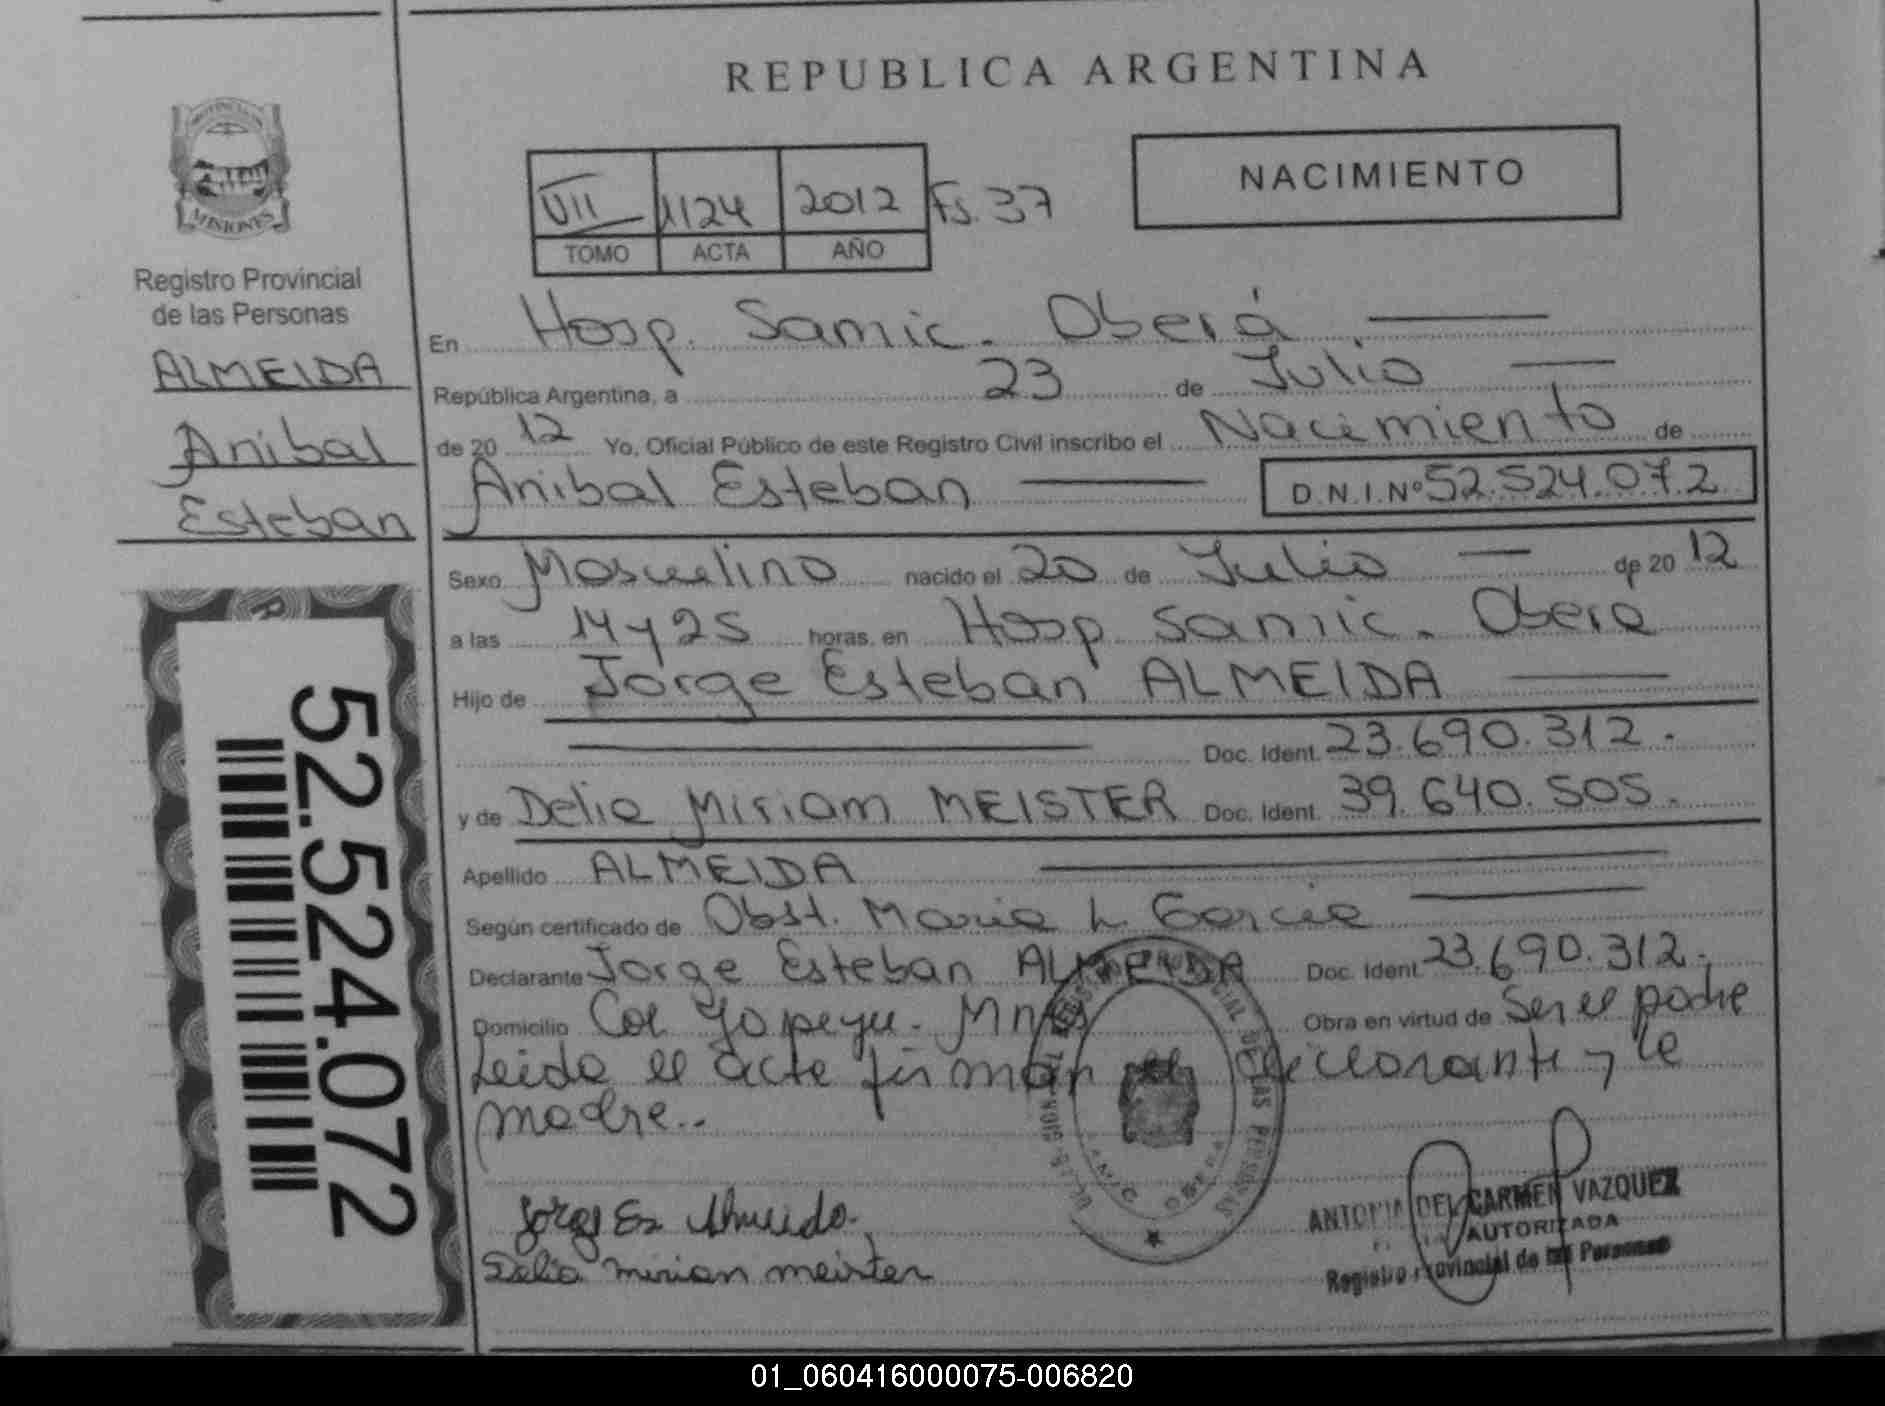 REPUBLICA ARGENTINA
PROVINCIA DE
MISIONES
Registro Provincial
de las Personas
ALMEIDA
Anibal
Esteban
52.524.072
VII 1124 2012 Fs. 37
TOMO ACTA AÑO
NACIMIENTO
En Hosp. Samic. Oberá
República Argentina, a 23 de Julio
de 20 12 Yo, Oficial Público de este Registro Civil inscribo el Nacimiento de
Anibal Esteban D.N.I.Nº 52.524.072
Sexo Masculino nacido el 20 de Julio de 20 12
a las 14 y 25 horas, en Hosp Samic. Oberá
Hijo de Jorge Esteban ALMEIDA
Doc. Ident. 23.690.312.
y de Delia Miriam MEISTER Doc. Ident. 39.640.505.
Apellido ALMEIDA
Según certificado de Obst. Maria L. Garcia
Declarante Jorge Esteban ALMEIDA Doc. Ident. 23.690.312.
Domicilio Col Yapeyu. Mnes Obra en virtud de Ser el padre
Leida el acta firman el declarante y la
madre..
Jorge Es Almeida.
Delia mirian meister
ANTONIA DEL CARMEN VAZQUEZ
AUTORIZADA
Registro Provincial de las Personas
01_060416000075-006820